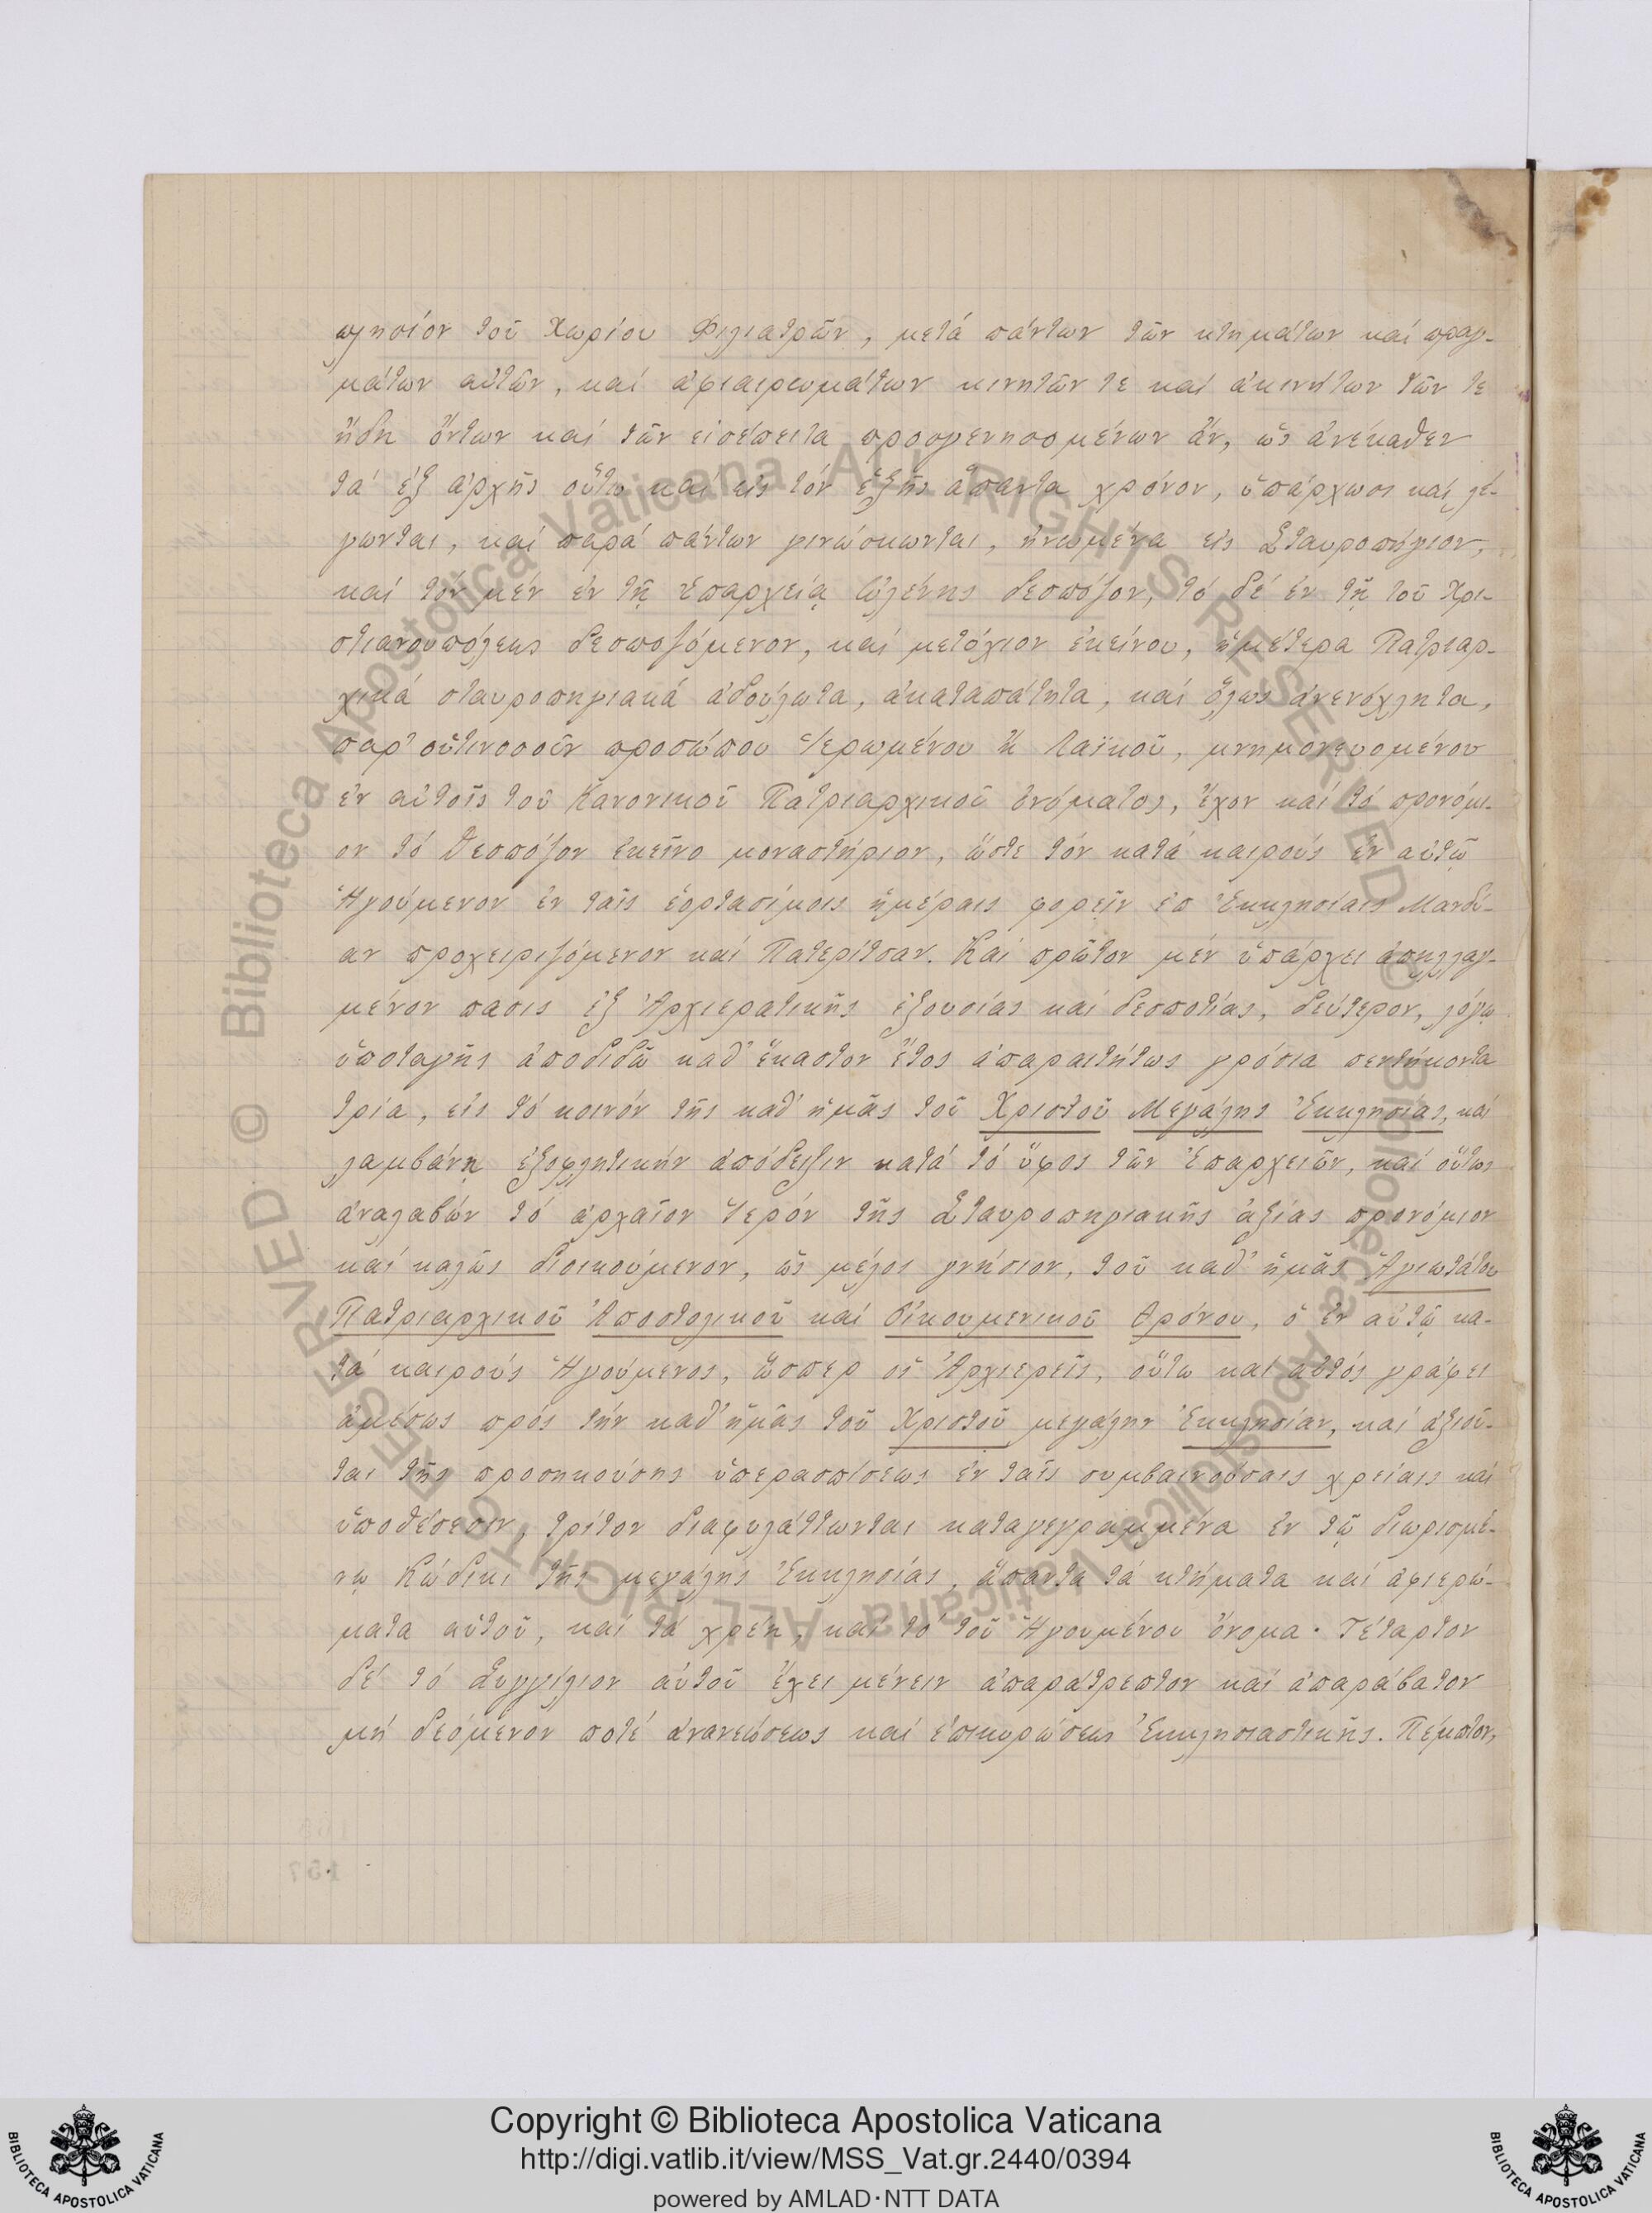 πλησίον τοῦ Χωρίου Φιλιατρῶν, μετά πάντων τῶν κτημάτων καί πραγ-
μάτων αὐτῶν, καί ἀφιαιρευμάτων κινητῶν τε καί ἀκινήτων τῶν τε
ἤδη ὄντων καί τῶν εἰσέπειτα προσγενησομένων ἄν, ὡς ἀνέκαθεν
τά ἐξ ἀρχῆς οὕτω καί εἰς τόν ἑξῆς ἅπαντα χρόνον, ὑπάρχωσι καί λέ-
γωνται, καί παρά πάντων γινώσκωνται, ἡνωμένα εἰς Σταυροπήγιον,
καί τόν μέν ἐν τῇ Ἐπαρχείᾳ Ὠλένης δεσπόζον, τό δέ ἐν τῇ τοῦ Χρι-
στιανουπόλεως δεσποζόμενον, καί μετόχιον ἐκείνου, ἡμέτερα Πατριαρ-
χικά σταυροπηγιακά ἀδούλωτα, ἀκαταπάτητα, καί ὅλως ἀνενόχλητα,
παρ' οὑτινοσοῦν προσώπου Ἱερωμένου ἤ Λαϊκοῦ, μνημονευομένου
ἐν αὐτοῖς τοῦ Κανονικοῦ Πατριαρχικοῦ ὀνόματος, ἔχον καί τό προνόμι-
ον τό δεσπόζον ἐκεῖνο μοναστήριον, ὥστε τόν κατά καιρούς ἐν αὐτῷ
Ἡγούμενον ἐν ταῖς ἑορτασίμοις ἡμέραις φορεῖν ἐπ Ἐκκλησίαις Μανδύ-
αν προχειριζόμενον καί Πατερίτσαν. Καί πρῶτον μέν ὑπάρχει ἀπηλλαγ-
μένον πασις ἐξ Ἀρχιερατικῆς ἐξουσίας καί δεσποτίας, δεύτερον, λόγῳ
ὑποταγῆς ἀποδιδῶ καθ' ἕκαστον ἔτος ἀπαραιτήτως γρόσια πεντήκοντα
τρία, εἰς τό κοινόν τῆς καθ' ἡμᾶς τοῦ Χριστοῦ Μεγάλης Ἐκκλησίας, καί
λαμβάνῃ ἐξοφλητικήν ἀπόδειξιν κατά τό ὕφος τῶν Ἐπαρχειῶν, καί οὕτως
ἀναλαβών τό ἀρχαῖον Ἱερόν τῆς Σταυροπηγιακῆς ἀξίας προνόμιον
καί καλῶς διοικούμενον, ὡς μέλος γνήσιον, τοῦ καθ' ἡμᾶς Ἁγιωτάτου
Πατριαρχικοῦ Ἀποστολικοῦ καί Οἰκουμενικοῦ Θρόνου, ὁ ἐν αὐτῷ κα-
τά καιρούς Ἡγούμενος, ὥσπερ οἱ Ἀρχιερεῖς, οὕτω καί αὐτός γράφει
ἀμέσως πρός τήν καθ' ἡμᾶς τοῦ Χριστοῦ μεγάλην Ἐκκλησίαν, καί ἀξιοῦ-
ται τῆς προσηκούσης ὑπερασπίσεως ἐν ταῖς συμβαινούσαις χρείαις καί
ὑποθέσεσιν, τρίτον διαφυλάττωνται καταγεγραμμένα ἐν τῷ διωρισμέ-
νῳ Κώδικι τῆς μεγάλης Ἐκκλησίας, ἅπαντα τά κτήματα καί ἀφιερώ-
ματα αὐτοῦ, καί τά χρέη, καί τό τοῦ Ἡγουμένου ὄνομα· Τέταρτον
δέ τό Συγγίλιον αὐτοῦ ἔχει μένειν ἀπαράτρεπτον καί ἀπαράβατον
μή δεόμενον ποτέ ἀνανεώσεως καί ἐπικυρώσεως Ἐκκλησιαστικῆς. Πέμπτον,
Copyright © Biblioteca Apostolica Vaticana
http://digi.vatlib.it/view/MSS_Vat.gr.2440/0394
powered by AMLAD·NTT DATA
BIBLIOTECA APOSTOLICA VATICANA
BIBLIOTECA APOSTOLICA VATICANA
© Biblioteca Apostolica Vaticana ALL RIGHTS RESERVED
© Biblioteca Apostolica Vaticana ALL RIGHTS RESERVED